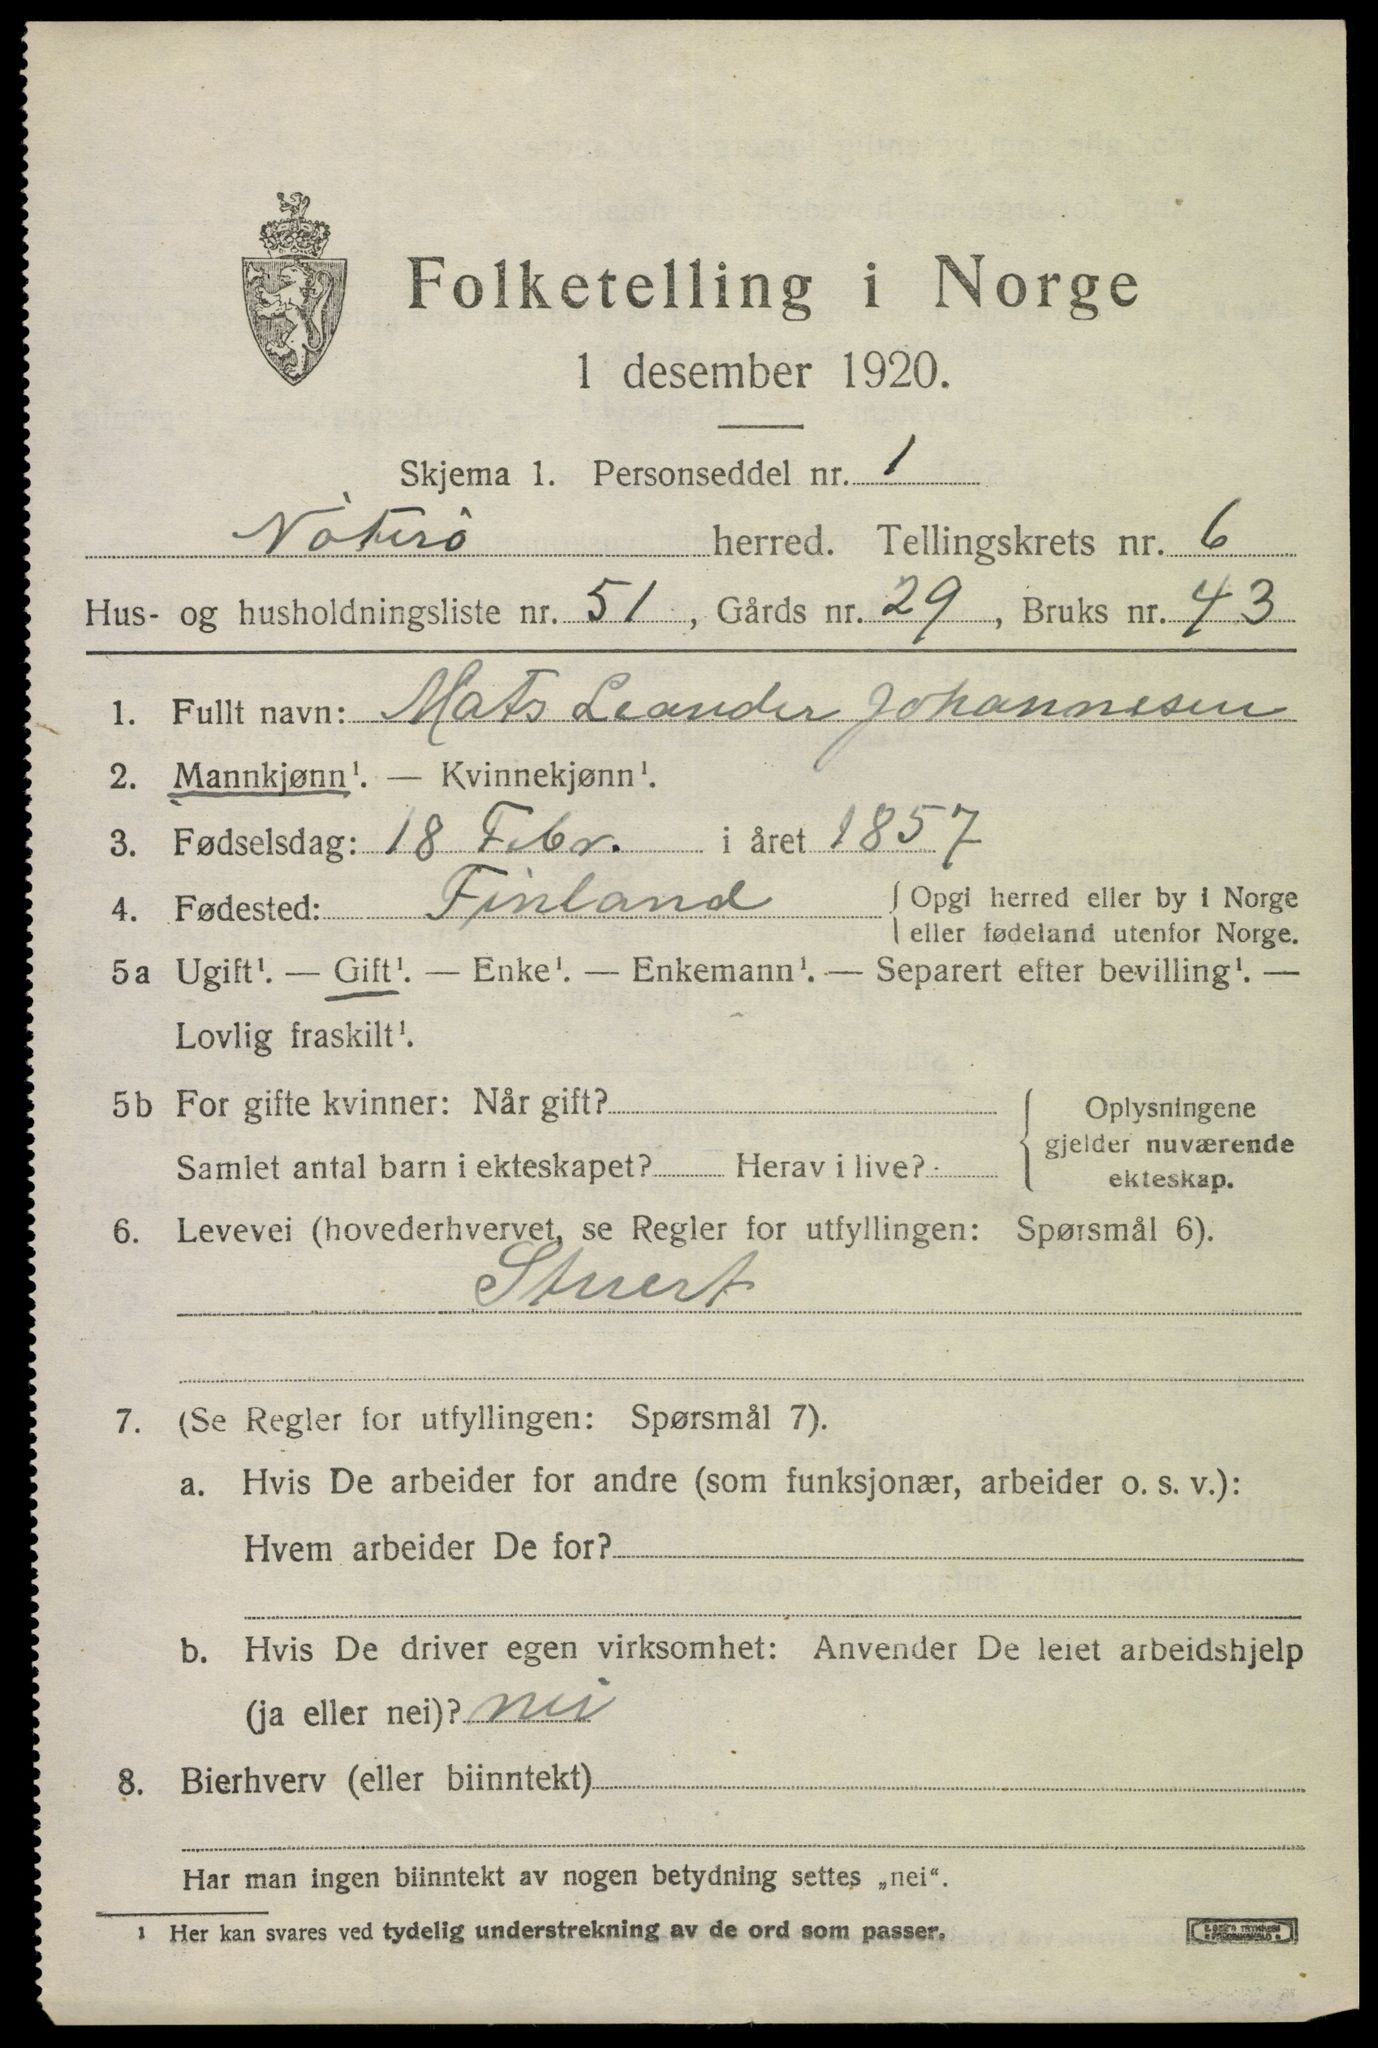 Folketelling i Norge
1 desember 1920.
Skjema 1. Personseddel nr. 1
Nøterø herred. Tellingskrets nr. 6
Hus- og husholdningsliste nr. 51, Gårds nr. 29, Bruks nr. 43
1. Fullt navn: Mats Leander Johannesen
2. Mannkjønn¹. — Kvinnekjønn¹.
3. Fødselsdag: 18 Febr. i året 1857
4. Fødested: Finland { Opgi herred eller by i Norge
eller fødeland utenfor Norge.
5a Ugift¹. — Gift¹. — Enke¹. — Enkemann¹. — Separert efter bevilling¹. —
Lovlig fraskilt¹.
5b For gifte kvinner: Når gift?
Samlet antal barn i ekteskapet? Herav i live?
Oplysningene
gjelder nuværende
ekteskap.
6. Levevei (hovederhvervet, se Regler for utfyllingen: Spørsmål 6).
Stuert
7. (Se Regler for utfyllingen: Spørsmål 7).
a. Hvis De arbeider for andre (som funksjonær, arbeider o. s. v.):
Hvem arbeider De for?
b. Hvis De driver egen virksomhet: Anvender De leiet arbeidshjelp
(ja eller nei)? nei
8. Bierhverv (eller biinntekt)
Har man ingen biinntekt av nogen betydning settes „nei“.
¹ Her kan svares ved tydelig understrekning av de ord som passer.